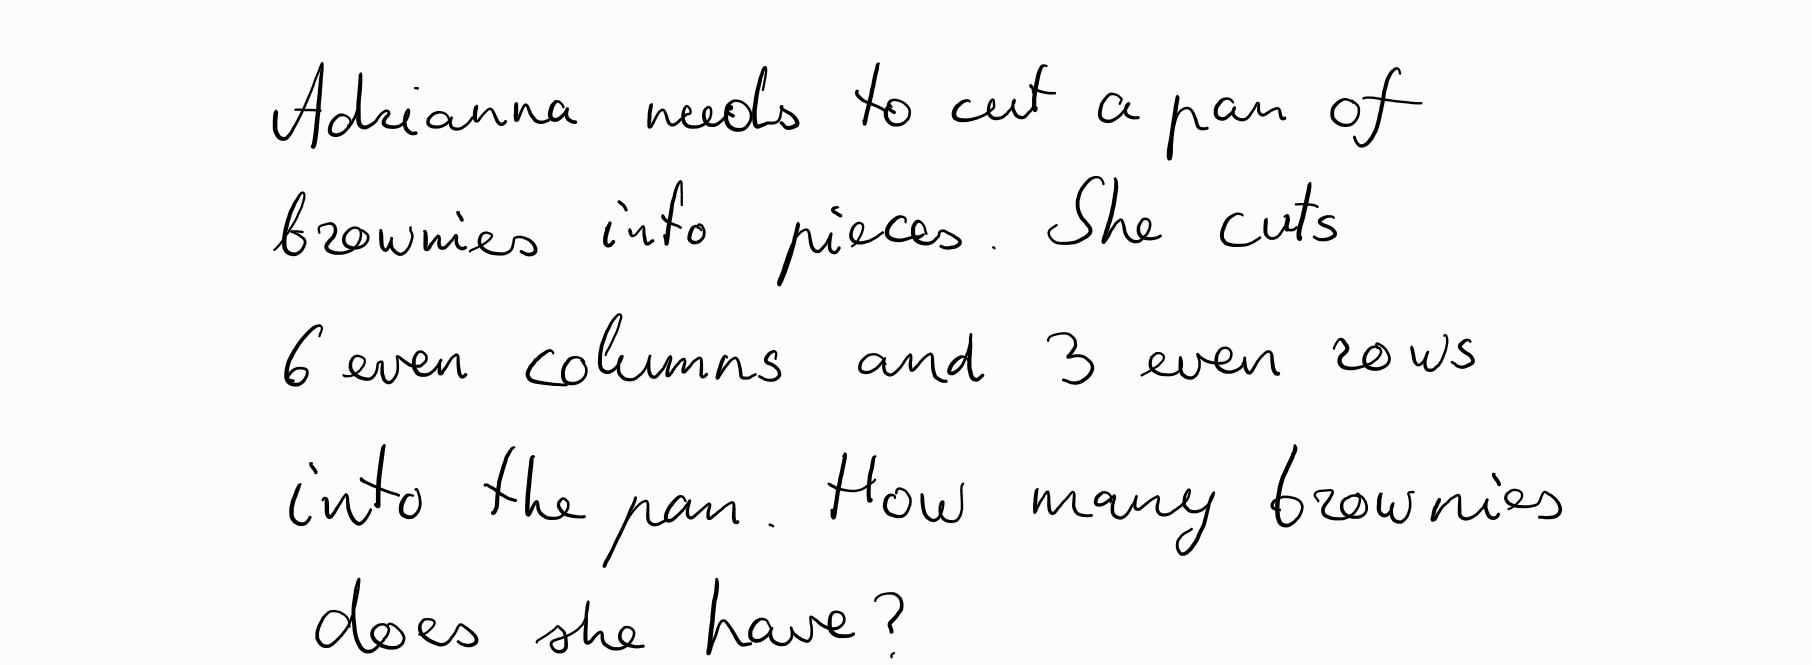 Adrianna needs to cut a pan of
brownies into pieces. She cuts
6 even columns and 3 even rows
into the pan. How many brownies
does she have?